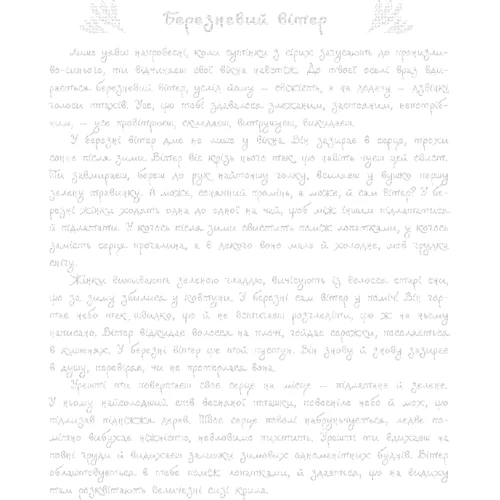 Березневий вітер
Лише уяви: напровесні, коли сутінки з сірих загусають до пронизли-
во-синього, ти відчиняєш свої вікна навстіж. До твоєї оселі враз вди-
рається березневий вітер, услід йому – свіжість, а на додачу – дзвінкі
голоси птахів. Усе, що тобі здавалося злежаним, застояним, непотріб-
ним, – усе провітрюєш, складаєш, витрушуєш, викидаєш.
У березні вітер дме не лише у вікна. Він зазирає в серце, трохи
сонне після зими. Вітер віє крізь нього так, що навіть чуєш цей свист.
Ти завмираєш, береш до рук найтоншу голку, всиляєш у вушко першу
зелену травинку. А може, сонячний промінь, а може, й сам вітер? У бе-
резні жінки ходять одна до одної на чай, щоб між іншим підлататися
й підлатати. У когось після зими свистить поміж лопатками, у когось
замість серця прогалина, а в декого воно мале й холодне, мов грудка
снігу.
Жінки вишивають зеленою гладдю, вичісують із волосся старі сни,
що за зиму збилися у ковтуни. У березні сам вітер у помічі. Він гор-
тає небо так швидко, що й не встигаєш розгледіти, що ж на ньому
написано. Вітер відкидає волосся на плечі, гойдає сережки, поселяється
в кишенях. У березні вітер ще той пустун. Він знову й знову зазирає
в душу, перевіряє, чи не протерлася вона.
Урешті ти повертаєш своє серце на місце – підлатане й зелене.
У ньому найсолодший спів весняної пташки, повесніле небо й мох, що
підлизав підніжжя дерев. Твоє серце поволі набруньчується, ледве по-
мітно вибухає ніжністю, невловимо тихшить. Урешті ти вдихаєш на
повні груди й видихаєш залишки зимових одноманітних буднів. Вітер
облаштовується в тебе поміж лопатками, й здається, що на видиху
там розквітають величезні сизі крила.